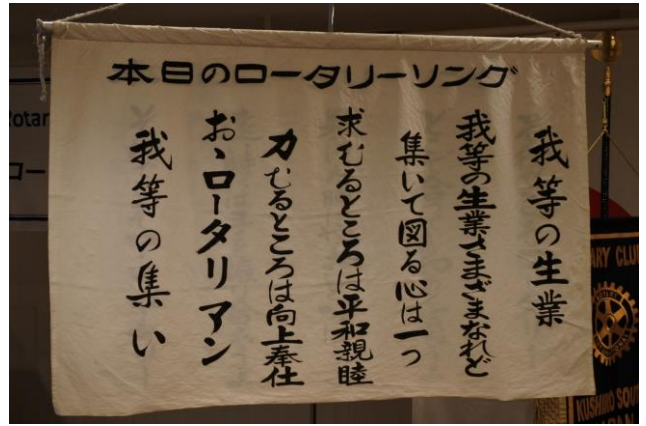 本日のロータリーソング
我等の生業
我等の生業さまざまなれど
集いて図る心は一つ
求むるところは平和親睦
力むるところは向上奉仕
おゝロータリアン
我等の集い
Rotar
ロー
ARY CLU
KUSHIRO SOU
JAPAN